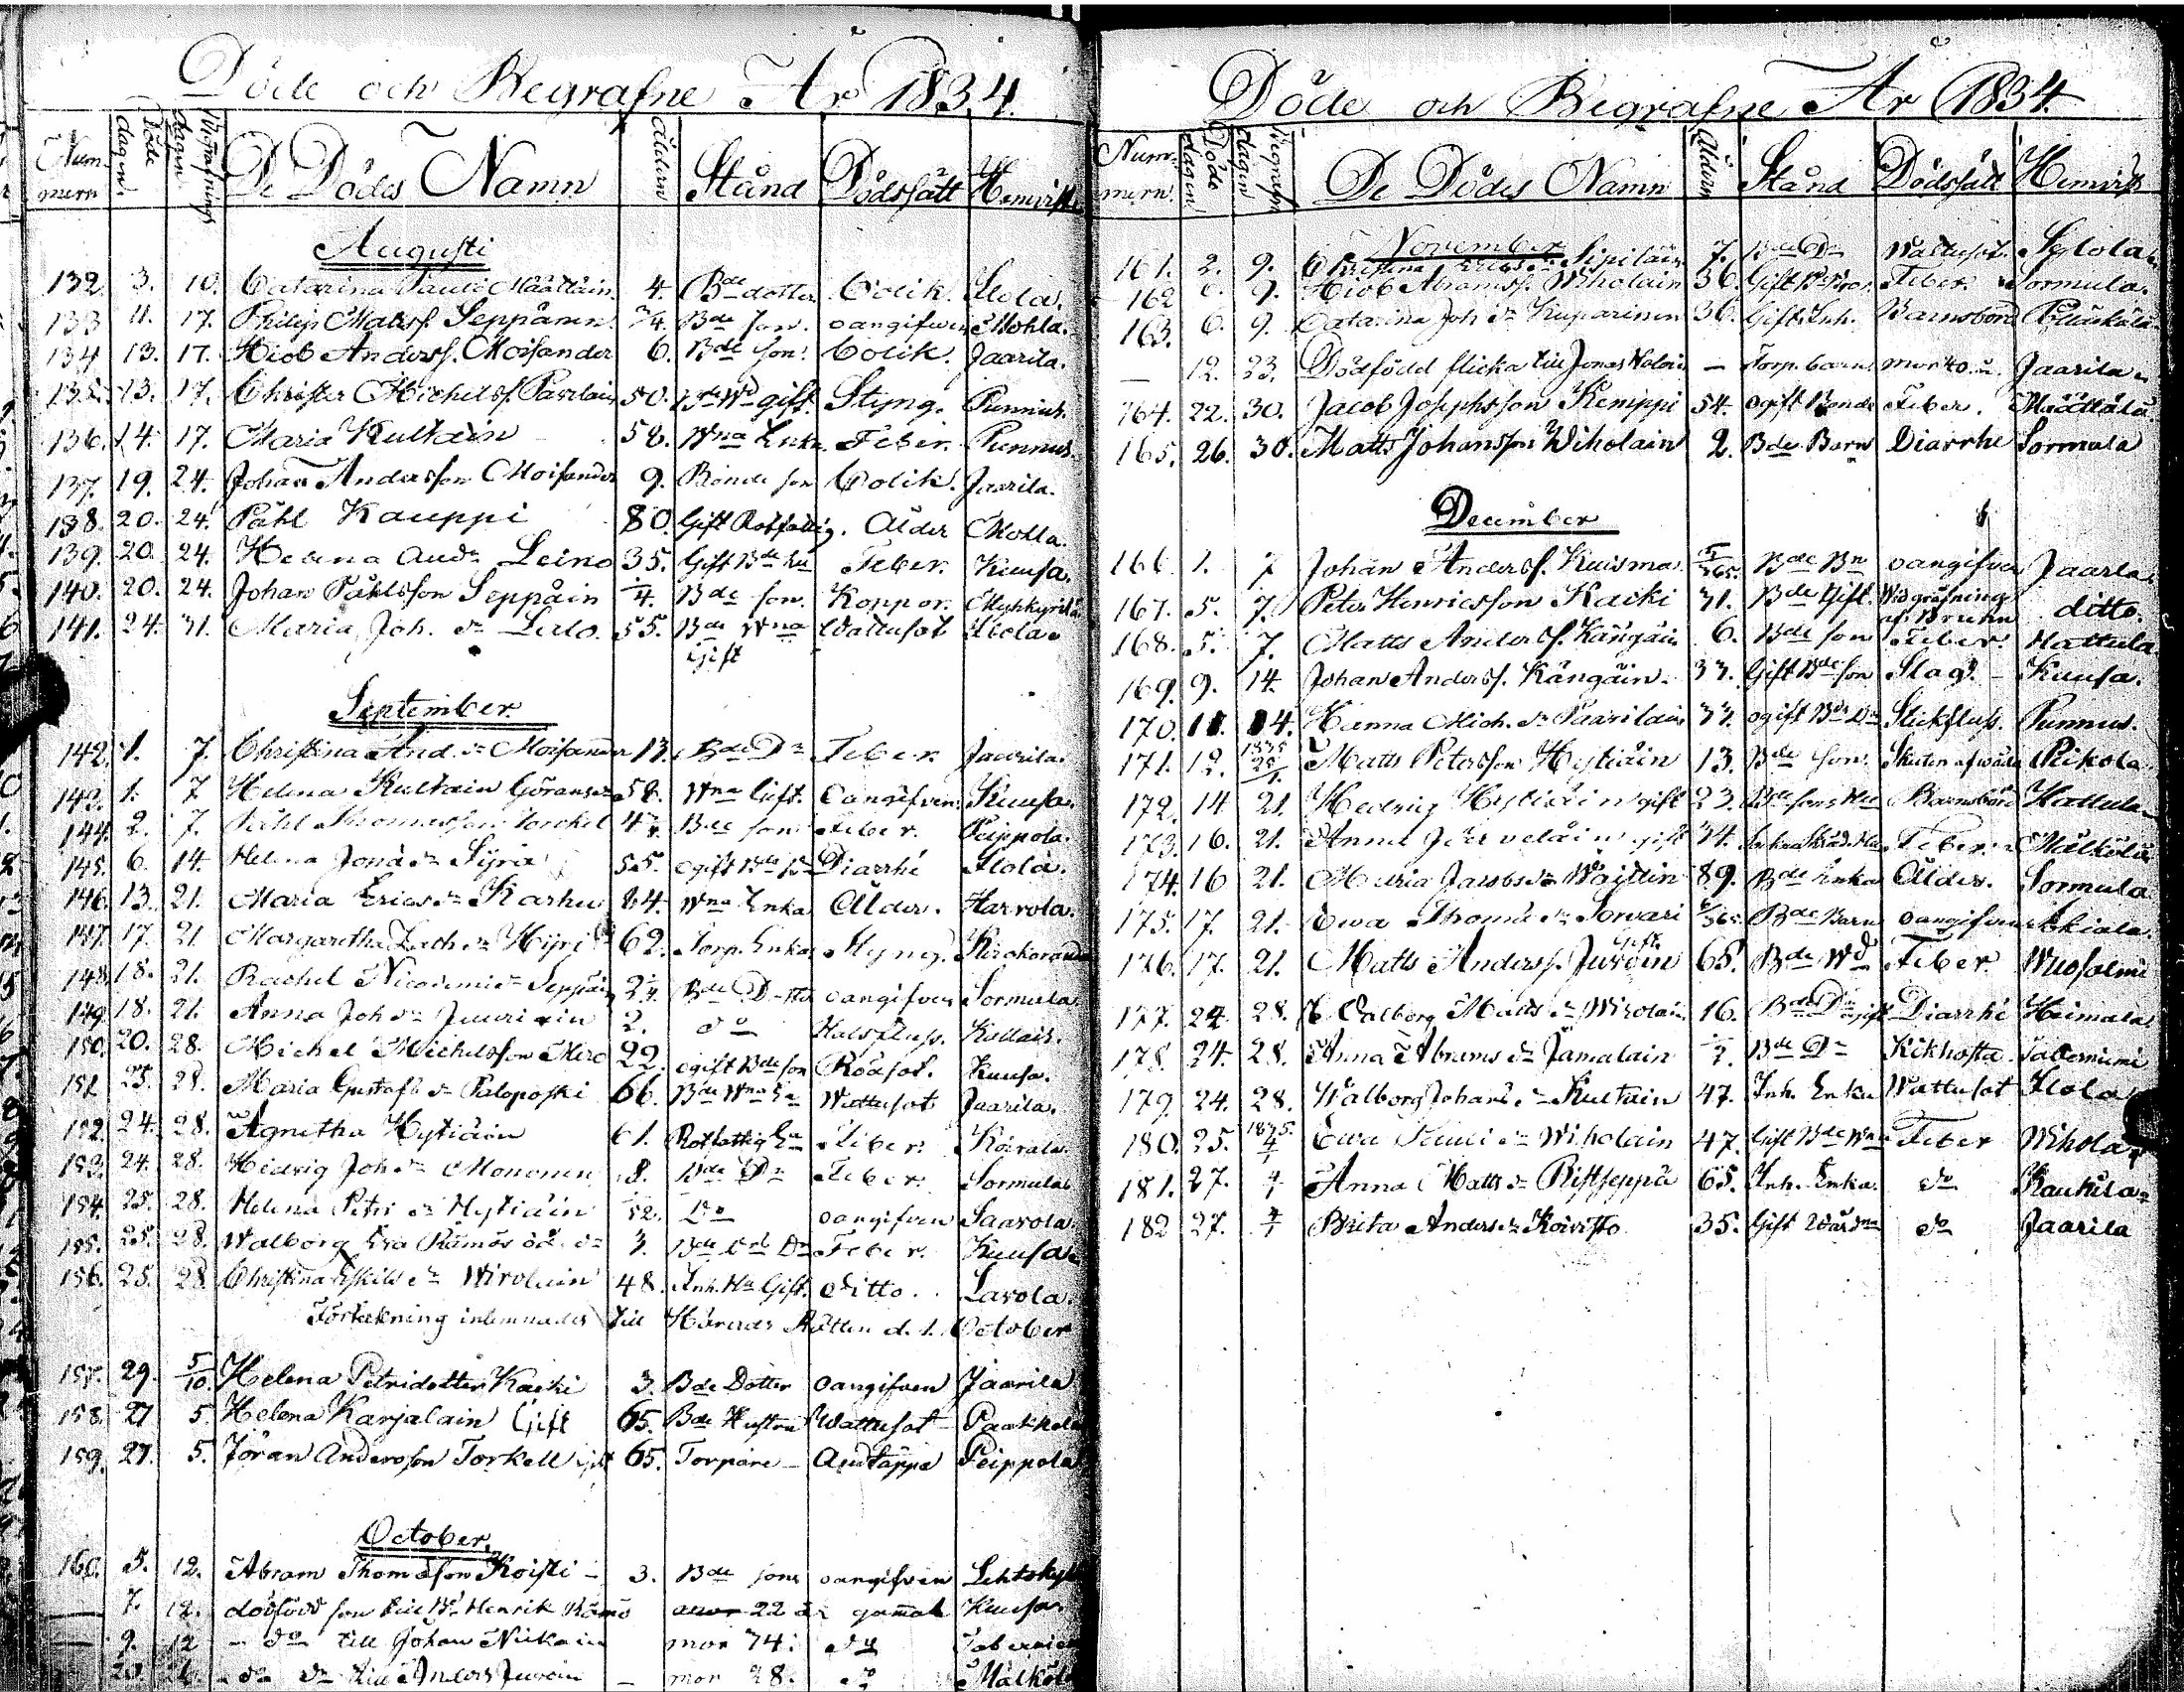 Döde och Begrafne År 1834.
Nummern Döde dagen Begrafnings dagen De Dödes Namn Åldern Stånd Dödssätt Hemvist
Augusti
132. 3. 10. Catarina Pauls Määttäin. 4. Bde dotter Colik. Ilola.
133 11. 17. Philip Matss. Seppänen. 3/4. Bde son. oangifven Mohla.
134 13. 17. Hiob Anderss. Moisander 6. Bde son. Colik. Jaarila.
135. 13. 17. Christer Michelss. Paarlain 50. Bde Wd gift. Styng. Punnus.
136. 14. 17. Maria Kultain 58. Wna Enka. Feber. Punnus.
137. 19. 24. Johan Andersson Moisander 9. Bonde son Colik. Jaarila.
138. 20. 24. Påhl Kauppi 80. Gift Rotfattig. Ålder Molla.
139. 20. 24. Helena And. dr Leino 35. Gift Bde Feber. Kuusa.
140. 20. 24. Johan Påhlsson Seppäin 1/4. Bde son. Koppor. Myhkyrilä
141. 24. 31. Maria Joh. dr Lalo. 55. Bde Wna Gift Wattusot Ilola.
September.
142. 1. 7. Christina And. dr Moisander 13. Bde Dr Feber. Jaarila.
143. 1. 7 Helena Kultain Görans dr 58. Wna Gift. Oangifven. Kuusa.
144. 2. 7. Påhl Thomasson Torckel Bde son Feber. Peippola.
145. 6. 14. Helena Jona dr Syria 55. ogift Bde Dr Diarrhé Ilola.
146. 13. 21. Maria Erics dr Karhu 84. Wna Enka Ålder. Harvola.
147. 17. 21. Margaretha Zach. dr Hyri 62. Torp. Enka Styng. Kirckoranda
148. 18. 21. Rachel Nicodemi dr Seppäin Bde D-tter oangifven Sormula.
149. 18. 21. Anna Joh dr Juuriain 2. do Halsfluss. Kollais.
150. 20. 28. Michel Michelsson Miro 22. ogift Bde son Rödsot. Kuusa.
151. 23. 28. Maria Gustafs dr Paloposki 66. Bde Wna Ea Wattusot Jaarila.
152. 24. 28. Agnetha Hytiäin 61. Rotfattig Ea Feber. Kaivala.
153. 24. 28. Hedvig Joh dr Mononen 8. Bde Dr Feber. Sormula
154. 25. 28. Helena Petri dr Hytiäin /52. Do oangifven Saarola.
155. 25. 28. Walborg Eva Rämös dr 3. Bde Dr Feber. Kuusa.
156. 25. 28 Christina Eskils dr Wirolain 48. Inh. Hu Gift. ditto. Lavola.
Förteckning inlemnades till Härads Rätten d. 1. October
157. 29. 5/10. Helena Petridotter Kaeki 3. Bde Dotter oangifven Jaarila
158. 27 5. Helena Karjalain Gift 65. Bde Hustru Wattusot Paakkola
159. 27. 5. Jöran Andersson Torkell gift 65. Torpare Andtäppa Peippola
October.
160. 5. 12. Abram Thomasson Koisti 3. Bde sons oangifven Lehtokylä
7. 12. dödfödd son till Bd Henrik Rämö mor 22 år gamal Kuusa.
9. 12 do till Johan Nickain mor 74: do Taberniemi
20. 26. do dr till Anders Juvain mor 28. do Mälkölä
Döde och Begrafne År 1834.
Nummern. Döde dagen Begrafn dagen De Dödes Namn Åldern Stånd Dödssätt Hemvist
November
161. 2. 9. Christina Erics dr Sipiläin 7. Bde Dr Wattusot. Ilola.
162 9. Hiob Abramss. Wiholain 36. Gift Bde son. Feber. Sormula.
163. 6. 9. Catarina Joh dr Kuparinen 36. Gift Inh. Barnsbörd Pölläkälä
12. 23. Dödfödd flicka till Jonas Torp. barn mor 40. år. Jaarila
164. 22. 30. Jacob Josephsson Kemppi 54. ogift Bonde Feber. Määttälä
165. 26. 30. Matts Johansson Wiholain 2. Bde Barn Diarrhe Sormula
December
166. 1. 7 Johan Anderss. Kuisma. 5/365. Bde Bn oangifven Jaarila.
167. 5. 7. Peter Henricsson Kaeki 31. Bde Gift. Wid gräfning af Brunn ditto.
168. 5. 7. Matts Anderss. Kängäin 6. Bde son Feber. Hattula
169. 9. 14. Johan Anderss. Kängäin. 37. Gift Bde son Slag. Kuusa.
170. 11. 14. Hanna Mich. dr Paarilain 37. ogift Bde Dr Stickfluss. Punnus.
171. 12. 1835 25/1. Matts Petersson Hytiäin 13. Bde son. Skuten af våda Pikola.
172. 14 21. Hedvig Hytiäin gift 23. Bde sons Hu Barnsbörd Hattula
173. 16. 21. Anna Jerveläin gift 34. Feber. Mälkölä
174. 16 21. Maria Jacobs dr Wäittin 89. Bde Enka Ålder. Sormula
175. 17. 21. Ewa Thomæ dr Sorvari 6/365. Bde Barn oangifven
176. 17. 21. Matts Anderss. Juvain Gift. 65. Bde Wd Feber. Wuosalmi
177. 24. 28. Walborg Matts dr Wirolain 16. Bde Dr ogift Diarrhé Heimala
178. 24. 28. Anna Abrams dr Jamalain Bde Dr Kikhosta Taberniemi
179. 24. 28. Walborg Johans dr Kultain 47. Inh. Enka Wattusot Ilola
180. 25. 1835. 4/1 Ewa Pauli dr Wiholain 47. Gift Bde Wna Feber Wihola
181. 27. 4/1 Anna Matts dr Ristseppä 65. Inh. Enka. do Kaukila
182 27. 4/1 Brita Anders dr Koivisto. 35. Gift do Jaarila